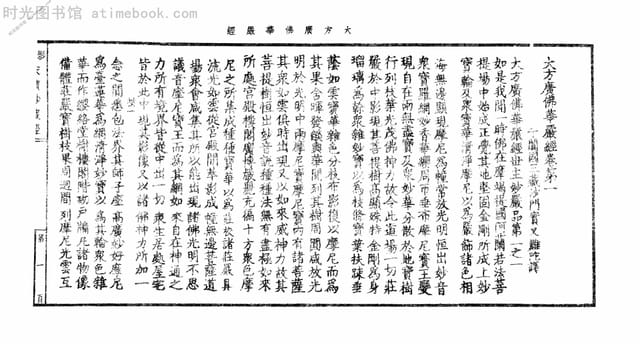 时光图书馆 - atimebook.com
大方廣佛華嚴經
大方廣佛華嚴經卷第一
于闐國三藏沙門實叉難陀譯
大方廣佛華嚴經世主妙嚴品第一之一
如是我聞一時佛在摩竭提國阿蘭若法菩
提場中始成正覺其地堅固金剛所成上妙
寶輪及眾寶華清淨摩尼以為嚴飾諸色相
海無邊顯現摩尼為幢常放光明恒出妙音
眾寶羅網妙香華纓周帀垂布摩尼寶王變
現自在雨無盡寶及眾妙華分散於地寶樹
行列枝葉光茂佛神力故令此道場一切莊
嚴於中影現其菩提樹高顯殊特金剛為身
瑠璃為幹眾雜妙寶以為枝條寶葉扶疎垂
蔭如雲寶華雜色分枝布影復以摩尼而為
其果含暉發燄與華間列其樹周圓咸放光
明於光明中雨摩尼寶摩尼寶內有諸菩薩
其眾如雲俱時出現又以如來威神力故其
菩提樹恒出妙音說種種法無有盡極如來
所處宮殿樓閣廣博嚴麗充徧十方眾色摩
尼之所集成種種寶華以為莊校諸莊嚴具
流光如雲從宮殿間萃影成幢無邊菩薩道
場眾會咸集其所以能出現諸佛光明不思
議音摩尼寶王而為其網如來自在神通之
力所有境界皆從中出一切眾生居處屋宅
皆於此中現其影像又以諸佛神力所加一
念之間悉包法界其師子座高廣妙好摩尼
為臺蓮華為網清淨妙寶以為其輪眾色雜
華而作瓔珞堂榭樓閣階砌戶牖凡諸物像
備體莊嚴寶樹枝果周迴間列摩尼光雲互